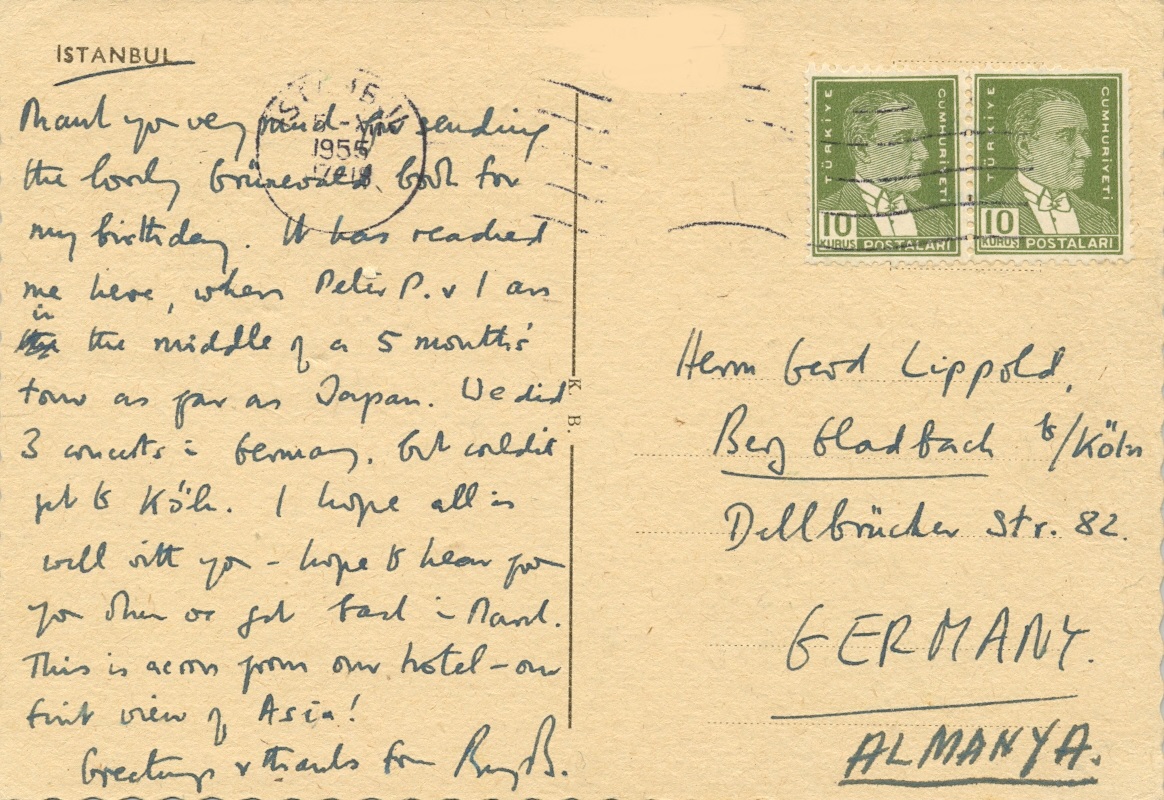 ISTANBUL
Thank you very much for sending
the lovely Grünewald book for
my birthday. It has reached
me here, where Peter P. & I are
in the middle of a 5 months'
tour as far as Japan. We did
3 concerts in Germany, but couldn't
get to Köln. I hope all is
well with you – hope to hear from
you when we get back in March.
This is across from our hotel – our
first view of Asia!
Greetings & thanks from
K. B.
1955
TÜRKİYE CUMHURİYETİ
10 KURUŞ POSTALARI
TÜRKİYE CUMHURİYETİ
10 KURUŞ POSTALARI
Herrn Gerd Lippold,
Berg Gladbach b/Köln
Dellbrücker Str. 82.
GERMANY.
ALMANYA.